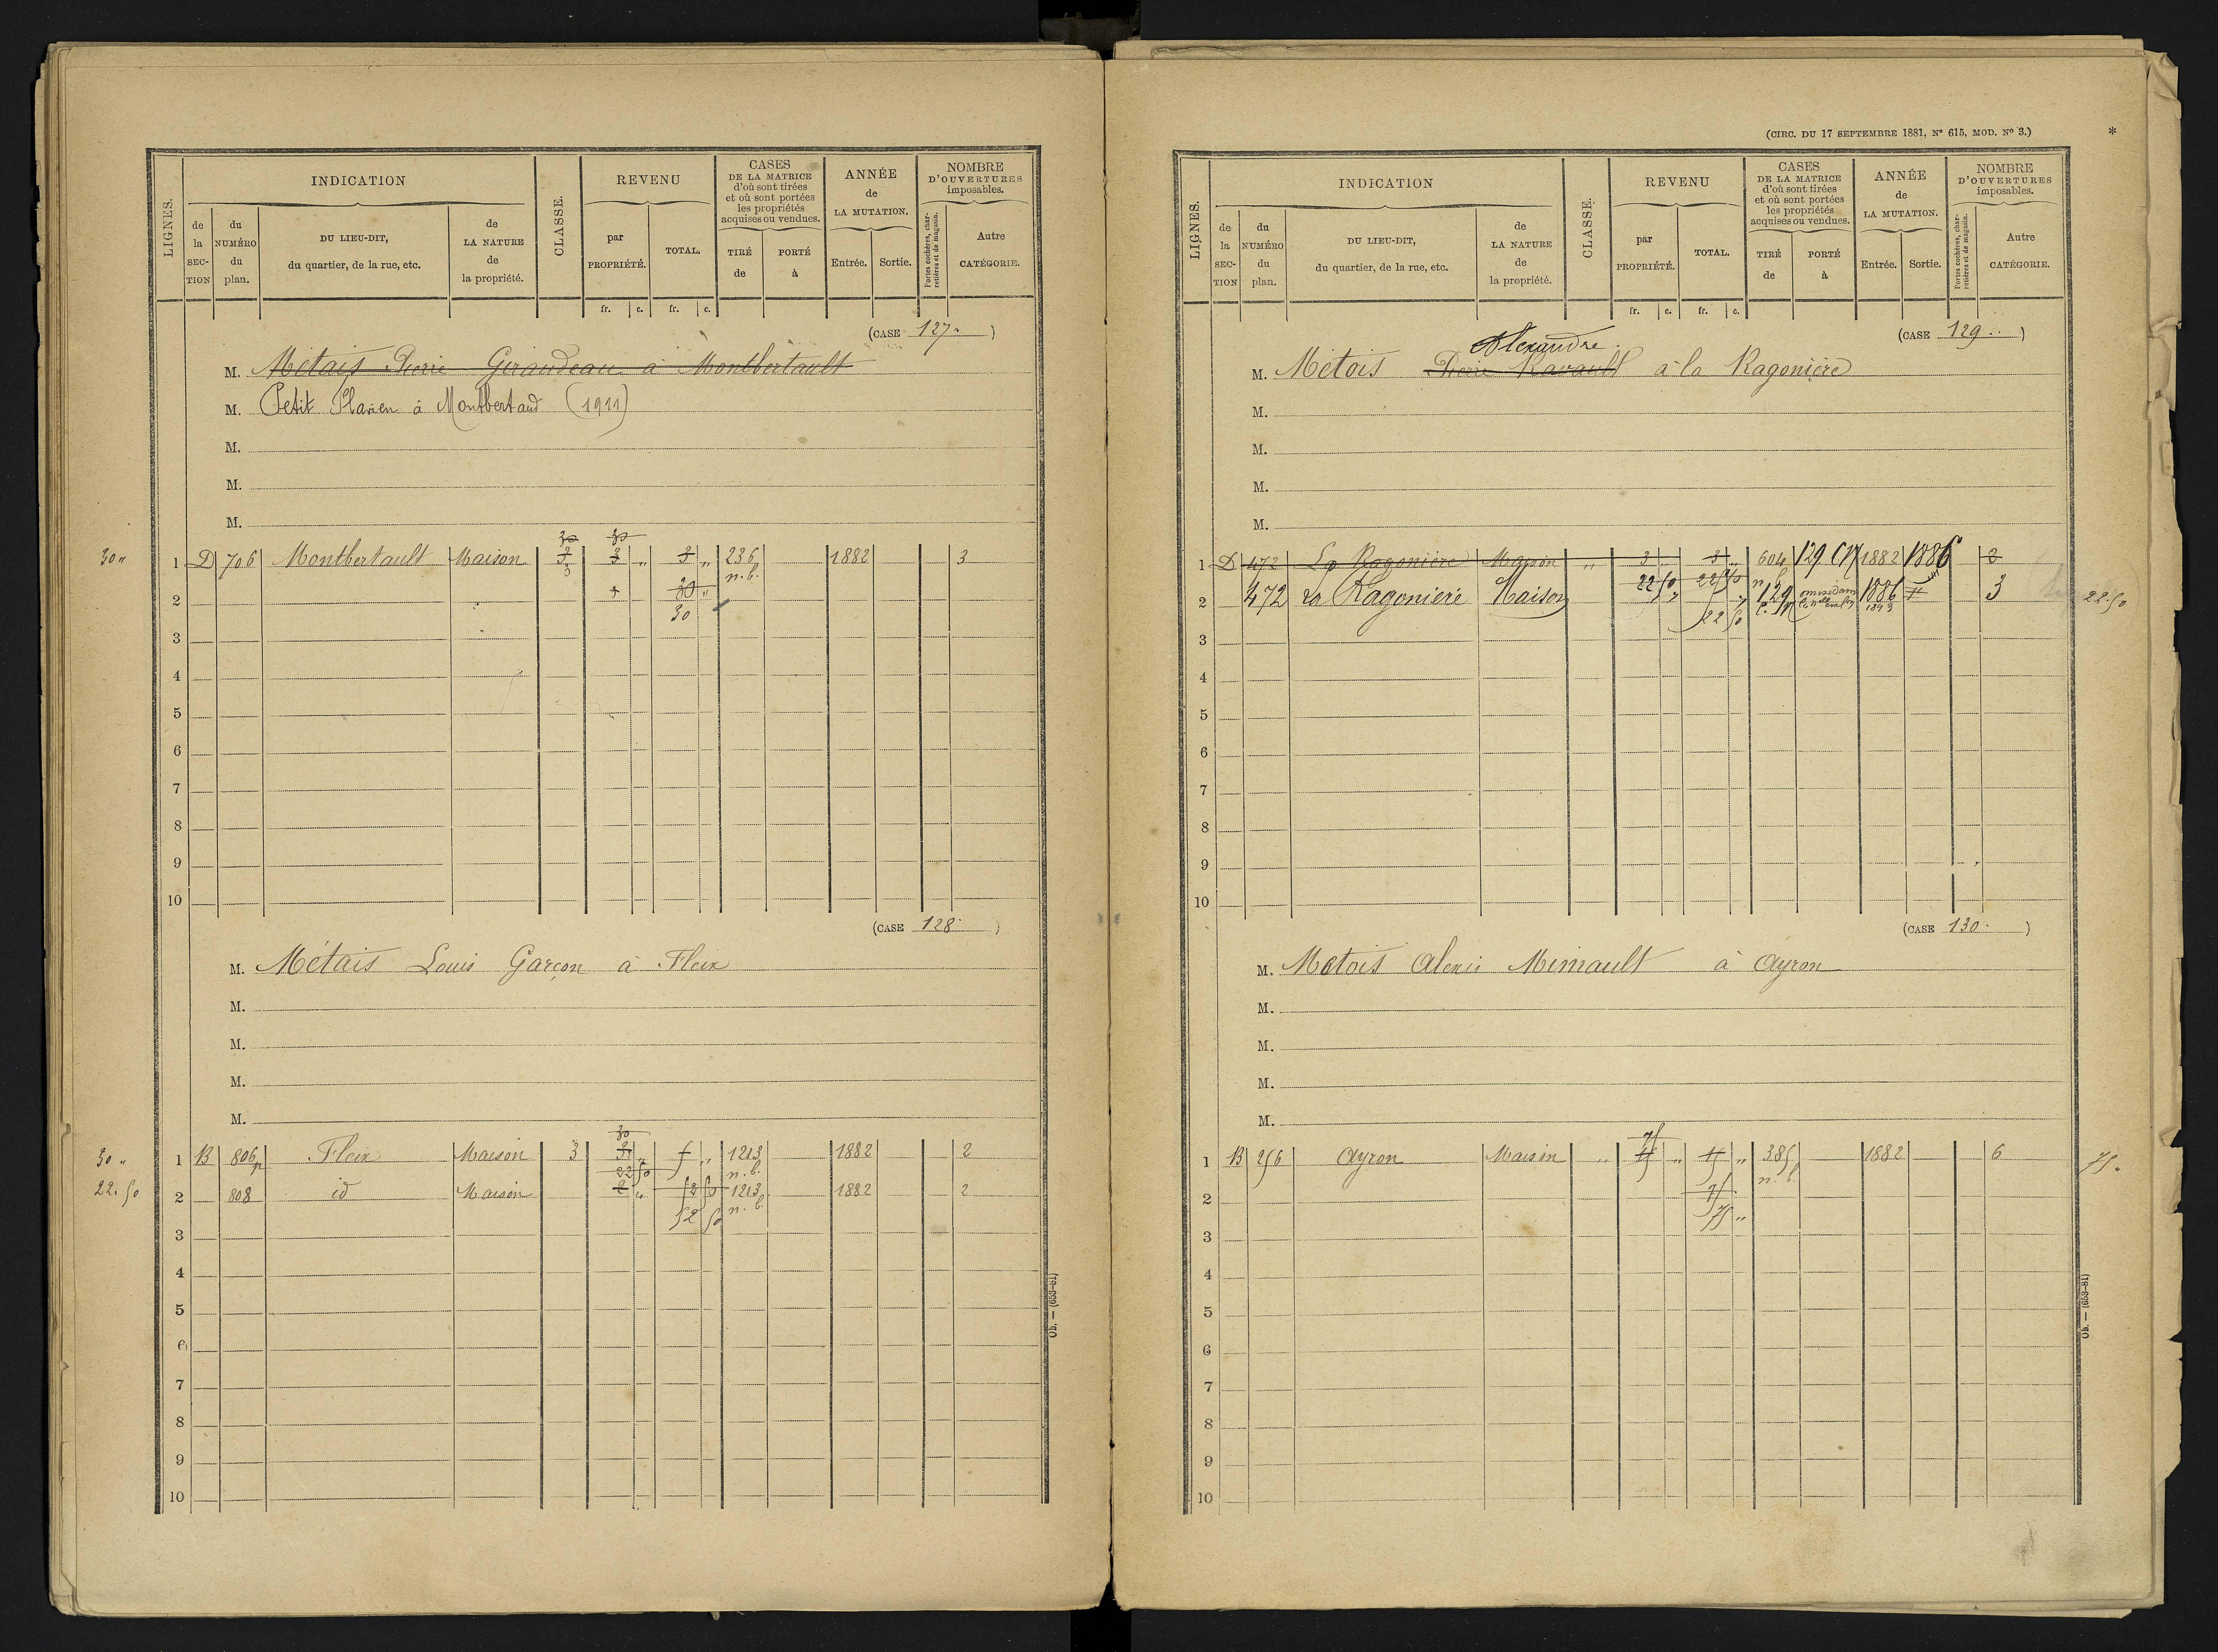 LIGNES.
INDICATION
de la SECTION
du NUMÉRO du plan.
DU LIEU-DIT, du quartier, de la rue, etc.
de LA NATURE de la propriété.
CLASSE.
REVENU
par PROPRIÉTÉ.
TOTAL.
fr. c. fr. c.
CASES DE LA MATRICE d'où sont tirées et où sont portées les propriétés acquises ou vendues.
TIRÉ de
PORTÉ à
ANNÉE de LA MUTATION.
Entrée. Sortie.
NOMBRE D'OUVERTURES imposables.
Portes cochères, charretières et de magasin.
Autre CATÉGORIE.
(CASE 127. )
M. Métais Pierre Giraudeau à Montbertault
M. Petit Flavien à Montbertaud (1911)
M.
M.
M.
30 30
30 " 1 D 706 Montbertault Maison 3 3 " 3 " 236 1882 3
n. b.
2 30 "
30
3
4
5
6
7
8
9
10
(CASE 128. )
M. Métais Louis Garçon à Fleix
M.
M.
M.
M.
30
30 " 1 B 806p Fleix Maison 3 3 " " 1213 1882 2
22 50 n. b.
22.50 2 808 id Maison 2 " 52 50 1213 1882 2
52 50 n. b.
3
4
5
6
7
8
9
10
Ob. — (653-81)
(CIRC. DU 17 SEPTEMBRE 1881, N° 615, MOD. N° 3.)
*
LIGNES.
INDICATION
de la SECTION
du NUMÉRO du plan.
DU LIEU-DIT, du quartier, de la rue, etc.
de LA NATURE de la propriété.
CLASSE.
REVENU
par PROPRIÉTÉ.
TOTAL.
fr. c. fr. c.
CASES DE LA MATRICE d'où sont tirées et où sont portées les propriétés acquises ou vendues.
TIRÉ de
PORTÉ à
ANNÉE de LA MUTATION.
Entrée. Sortie.
NOMBRE D'OUVERTURES imposables.
Portes cochères, charretières et de magasin.
Autre CATÉGORIE.
(CASE 129. )
Alexandre
M. Métois Pierre Ravault à la Ragonière
M.
M.
M.
M.
1 D 472 La Ragonière Maison " 3 " 3 " 604 129 1882 1886 2
22 50 22 50 n. b.
2 472 La Ragonière Maison 129 1886 3 22.50
22 50 1893
3
4
5
6
7
8
9
10
(CASE 130. )
M. Metois Alexis Mimault à Ayron
M.
M.
M.
M.
75
1 B 256 Ayron Maison " " " 385 1882 6 75 "
n. b.
2 75
75 "
3
4
5
6
7
8
9
10
Ob. — (653-81)